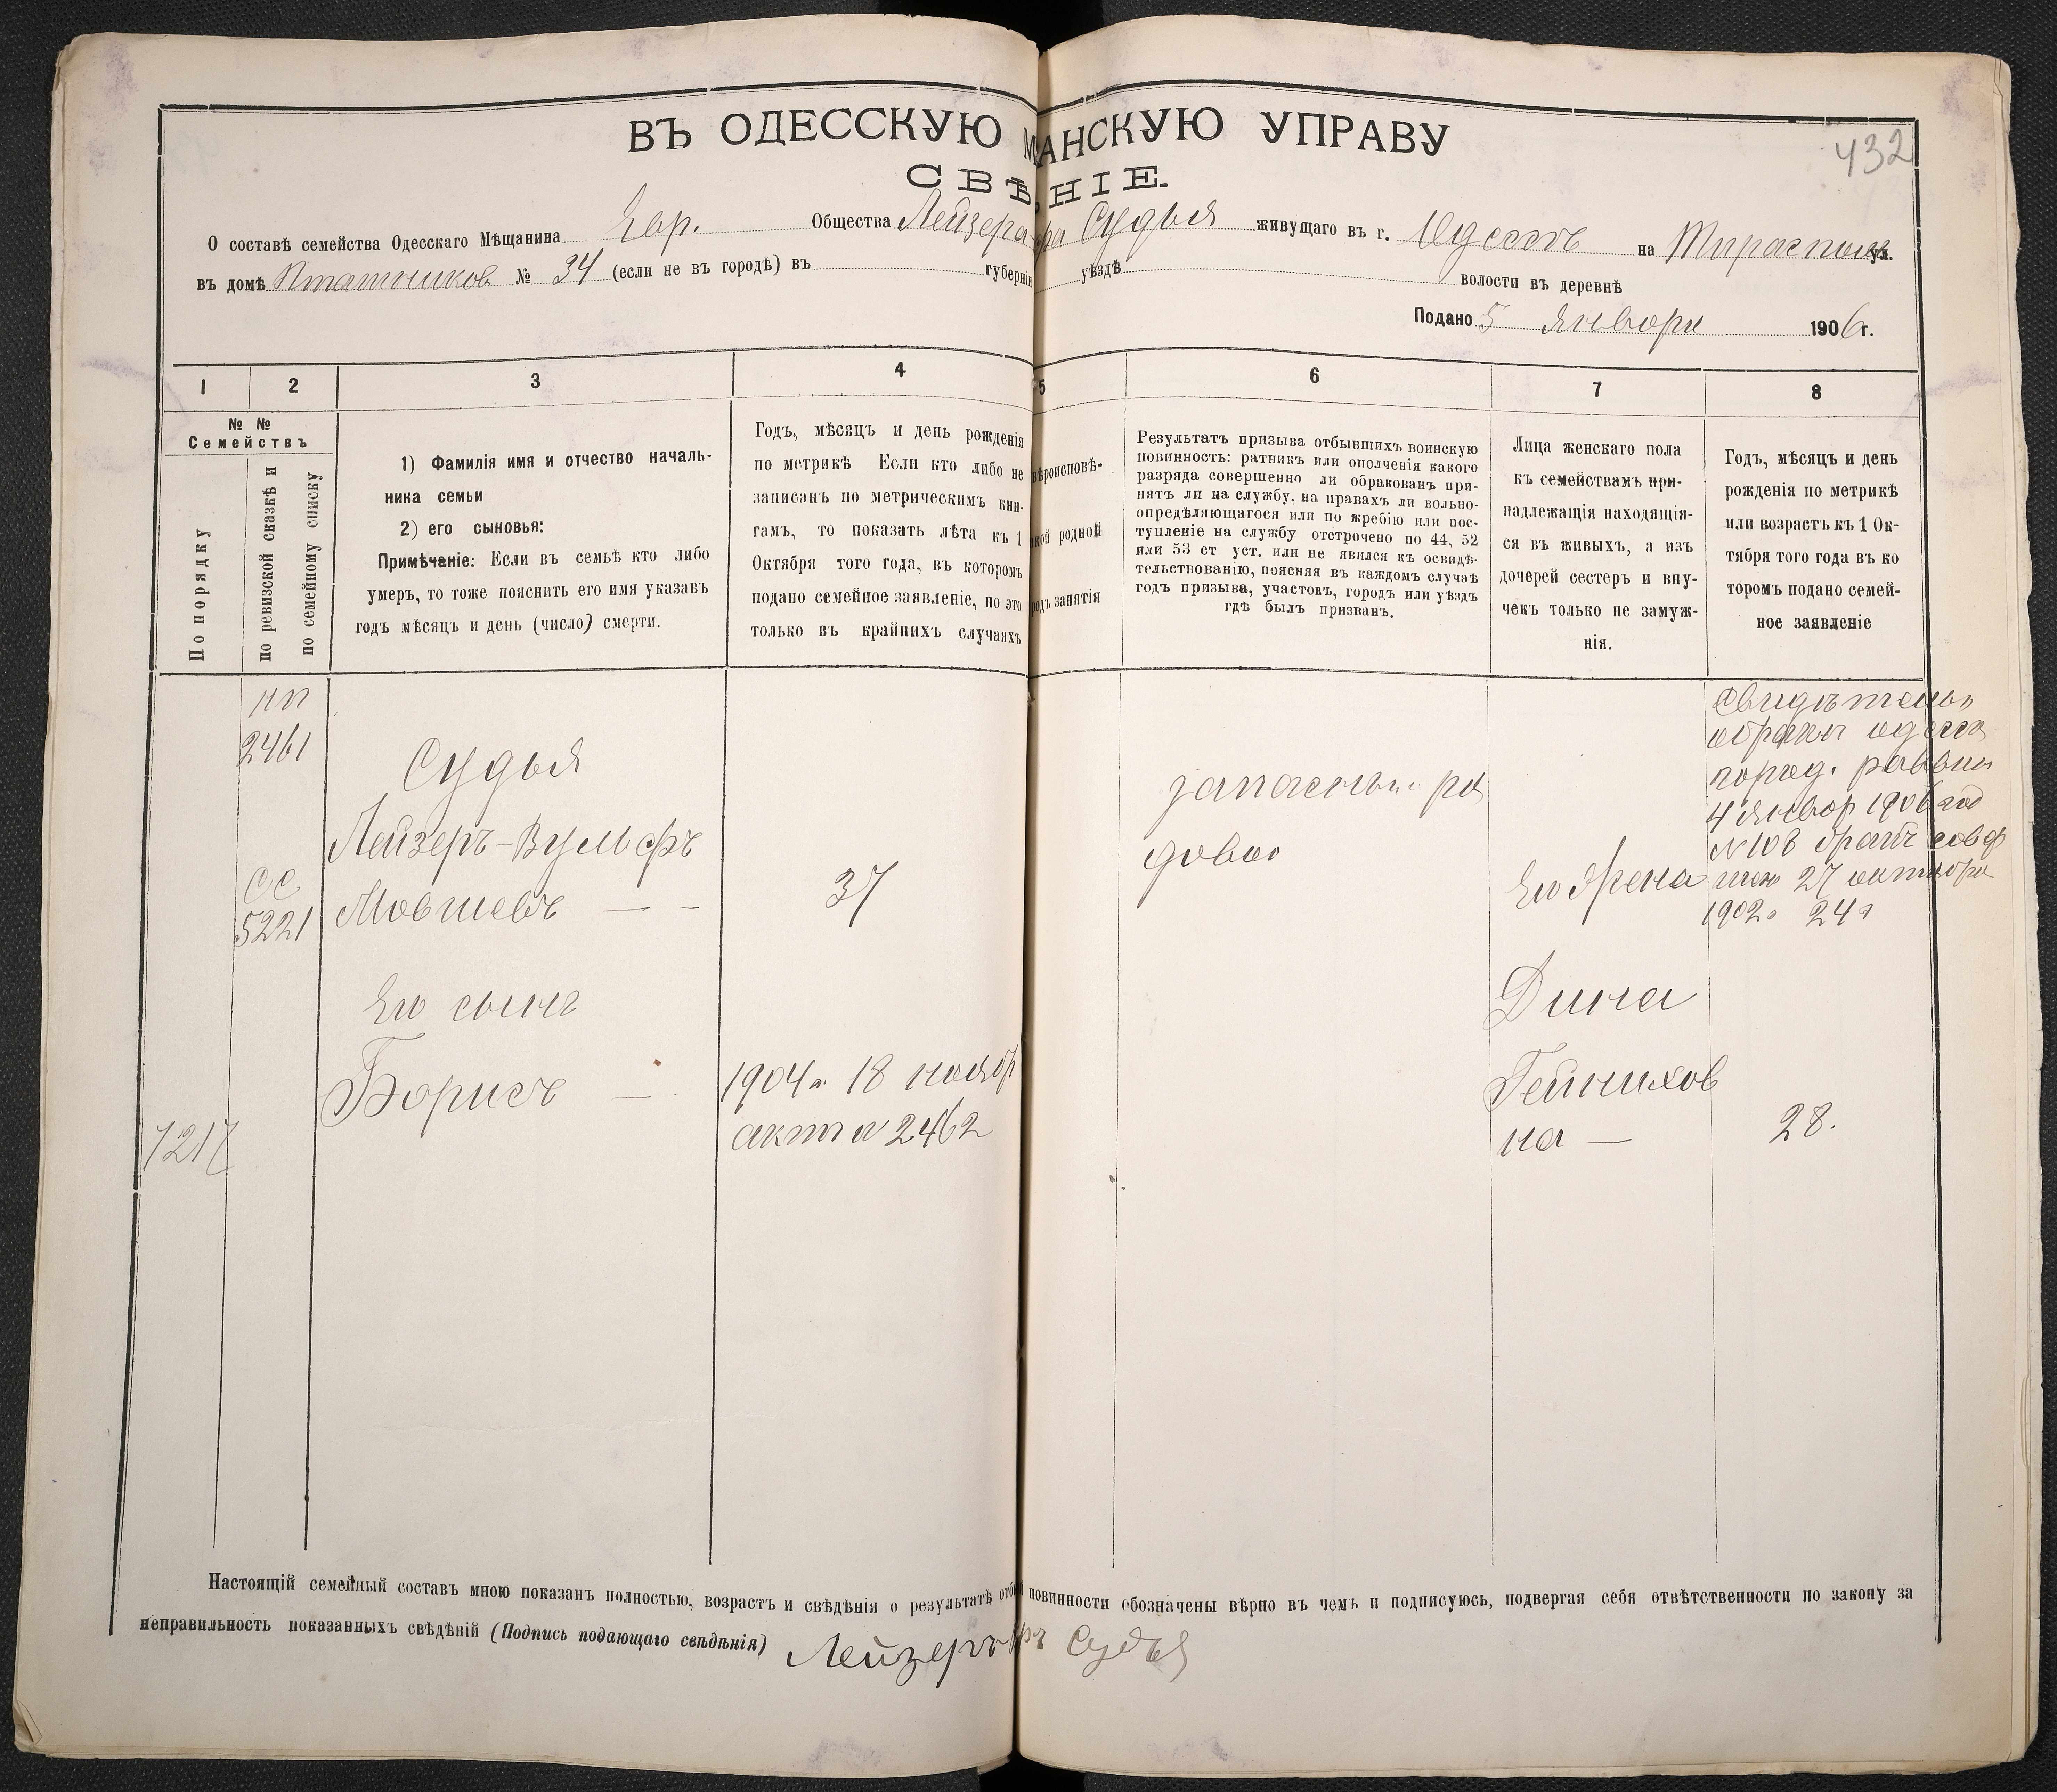 432
ВЪ ОДЕССКУЮ МАНСКУЮ УПРАВУ
СВѢ НІЕ.
О составѣ семейства Одесскаго Мѣщанина Евр. Общества Лейзера Судья живущаго въ г. Одессѣ на Тираспольск ул.
въ домѣ Пташников № 34 (если не въ городѣ) въ губерніи уѣздѣ волости въ деревнѣ
Подано 5 Января 1906 г.
1 2 3 4 5 6 7 8
№ №
Семействъ
По порядку
по ревизской сказкѣ и
по семейному списку
1) Фамилія имя и отчество началь-
ника семьи
2) его сыновья:
Примѣчаніе: Если въ семьѣ кто либо
умеръ, то тоже пояснить его имя указавъ
годъ мѣсяцъ и день (число) смерти.
Годъ, мѣсяцъ и день рожденія
по метрикѣ Если кто либо не
записанъ по метрическимъ кни-
гамъ, то показать лѣта къ 1
Октября того года, въ которомъ
подано семейное заявленіе, но это
только въ крайнихъ случаяхъ
вѣроисповѣ-
кой родной
родъ занятія
Результатъ призыва отбывшихъ воинскую
повинность: ратникъ или ополченія какого
разряда совершенно ли обракованъ при-
нятъ ли на службу, на правахъ ли вольно-
опредѣляющагося или по жребію или пос-
тупленіе на службу отстрочено по 44, 52
или 53 ст уст. или не явился къ освидѣ-
тельствованію, поясняя въ каждомъ случаѣ
годъ призыва, участокъ, городъ или уѣздъ
гдѣ былъ призванъ.
Лица женскаго пола
къ семействамъ при-
надлежащія находящія-
ся въ живыхъ, а изъ
дочерей сестеръ и вну-
чекъ только не замуж-
нія.
Годъ, мѣсяцъ и день
рожденія по метрикѣ
или возрастъ къ 1 Ок-
тября того года въ ко
торомъ подано семей-
ное заявленіе
нп
2461
Судья
Лейзеръ-Вульфъ
сс
5221
Мовшевъ — -
37
Его сынъ
Борисъ —
1904 г. 18 ноябр
акт № 2462
7217
запасный ря
довой
Его Жена
Дина
Гейнихов
на —
28.
Свидѣтель
о бракѣ одесск
город. раввин
4 Январ 1906 год
№ 108 бракъ совер
шон 27 октября
1902 г 24 г
Настоящій семейный составъ мною показанъ полностью, возрастъ и свѣдѣнія о результатѣ отб повинности обозначены вѣрно въ чемъ и подписуюсь, подвергая себя отвѣтственности по закону за
неправильность показанныхъ свѣдѣній (Подпись подающаго свѣдѣнія) Лейзеръ Судья